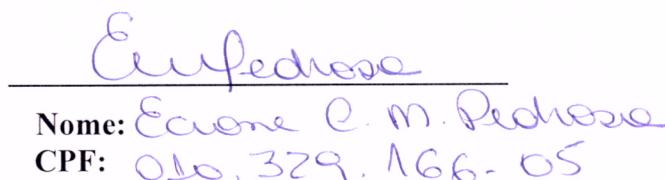 Ecmpedrosa
Nome: Ecione C. M. Pedrosa
CPF: 010.329.166-05